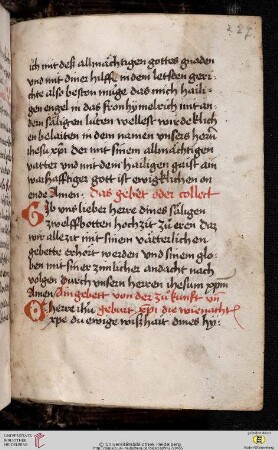 227
ich mit deß allmächtigen gottes gnaden
vnd mit diner hilff in dem letsten geri-
chte also beston müge das mich haili-
gen engel in das fronhymelrich mit an-
den säligen luten wellest wirdeklich
en belaiten in dem namen vnsers herrn
ihesu xpi der mit sinem allmächtigen
vatter vnd mit dem hailigen gaist ain
warhafftiger gott ist ewigklichen on
ende Amen. das gebet oder collect
Gib vns lieber herre dines säligen
zwelffbotten hochzit zu eren daz
wir allezit mit sinem vätterlichen
gebette erhört werden vnd sinem glo-
ben mit siner zimlicher andacht nach
volgen durch vnsern herren ihesum xpm
Amen Ain gebett von der zu kunft vn
O herre ihu geburt xpi die wienacht
xpe du ewige wißhait dines hy-
UNIVERSITÄTS-
BIBLIOTHEK
HEIDELBERG
© Universitätsbibliothek Heidelberg